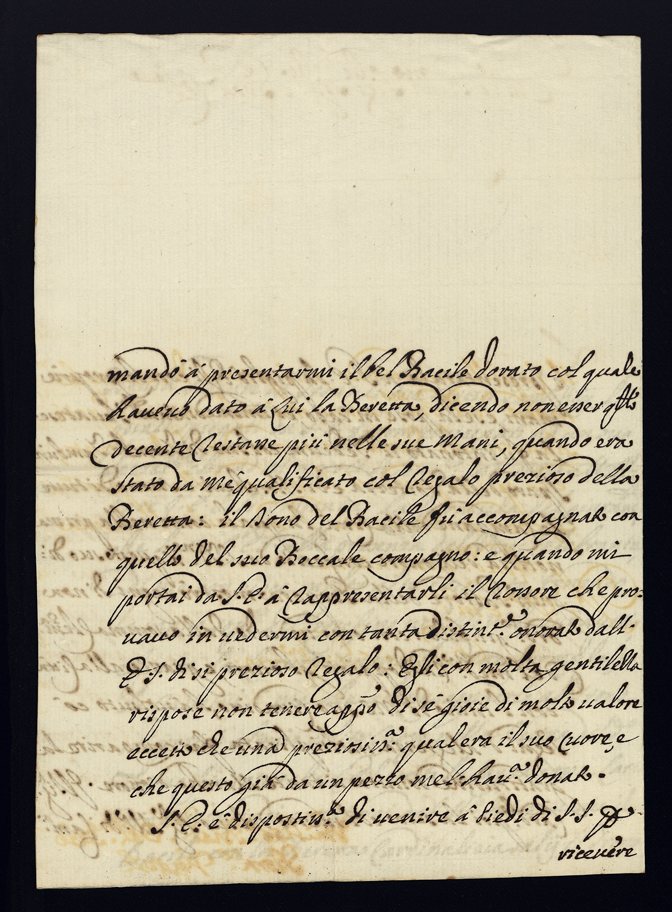 mandò à presentarmi il bel Bacile dorato col quale
haueuo dato à Lui la Beretta, dicendo non esser
decente restasse più nelle sue mani, quando era
stato da mè qualificato col regalo prezioso della
Beretta: il dono del Bacile fù accompagnato con
quello del suo Boccale compagno: e quando mi
portai da S. E. à rappresentarli il rossore che pro:
vavo in uedermi con tanta distint.ne onorato dall'
E. S. di sì prezioso regalo: Egli con molta gentilezza
rispose non tenere app.o di sè gioie di molto ualore
eccetto che una preziosiss.a qual era il suo Cuore, e
che questo già da un pezzo me l'hau.a donato.
S. E. è dispostiss.o di uenire à piedi di S. S. p
riceuere